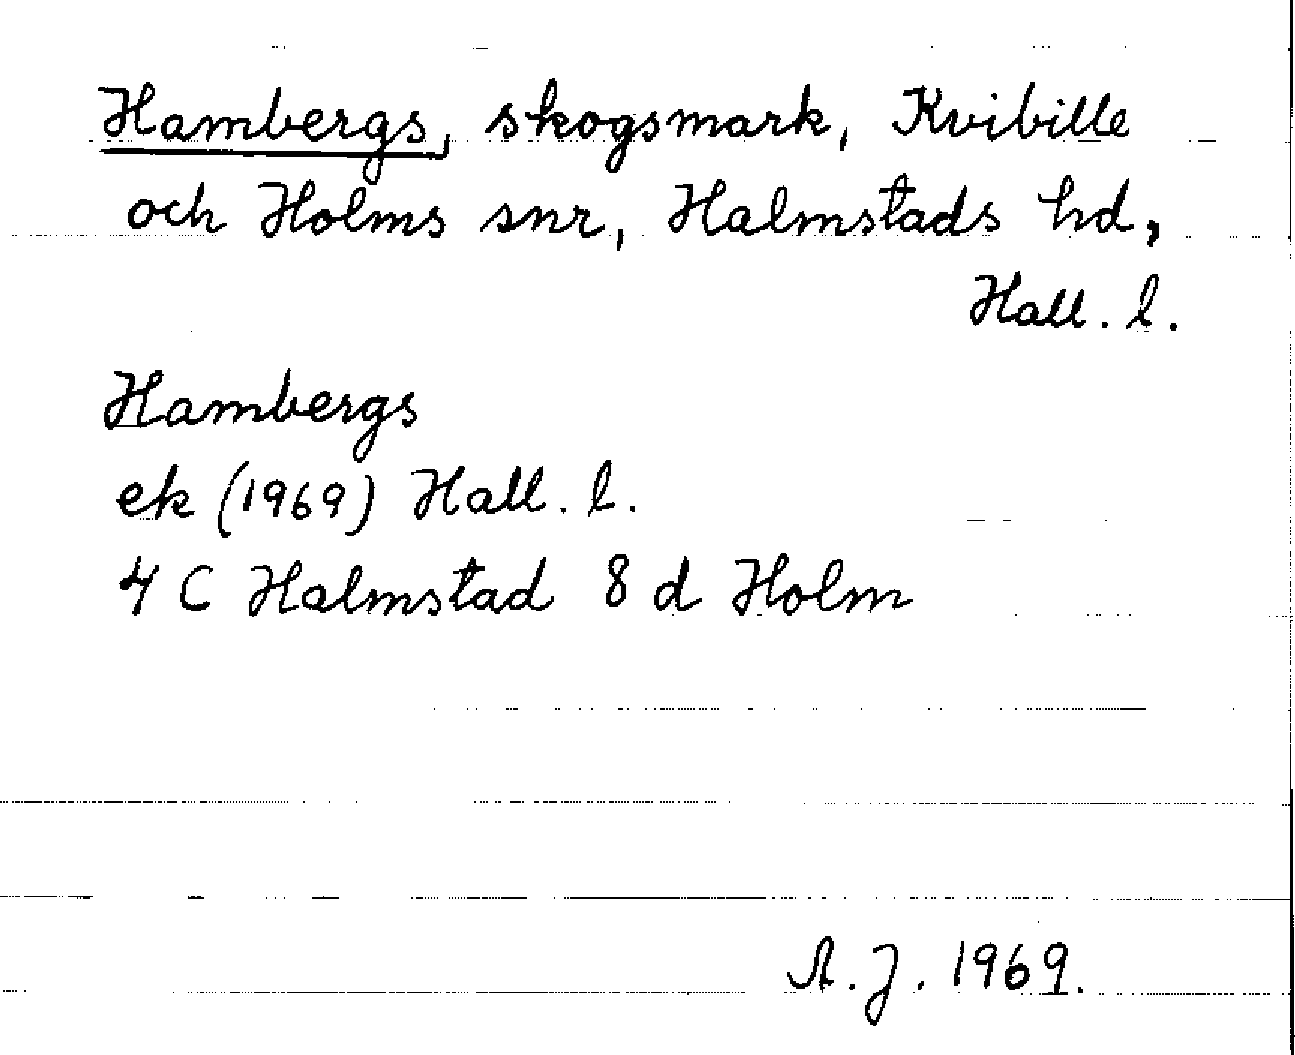 Hambergs, skogsmark, Kvibille
och Holms snr, Halmstads hd,
Hall. l.
Hambergs
ek (1969) Hall. l.
4 C Halmstad 8 d Holm
A. J. 1969.